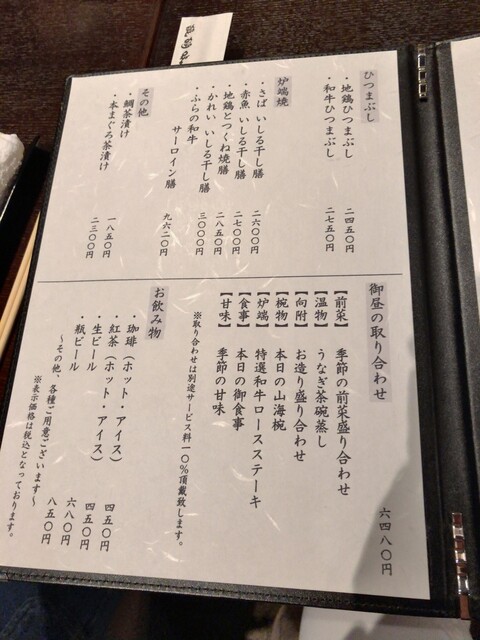 ひつまぶし
・地鶏ひつまぶし 二四五〇円
・和牛ひつまぶし 二七五〇円
炉端焼
・さば いしる干し膳 二六〇〇円
・赤魚 いしる干し膳 二七〇〇円
・地鶏とつくね焼膳 二八五〇円
・かれい いしる干し膳 三〇〇〇円
・ふらの和牛
サーロイン膳 九六二〇円
その他
・鯛茶漬け 一八五〇円
・本まぐろ茶漬け 二三〇〇円
御昼の取り合わせ 六四八〇円
【前菜】 季節の前菜盛り合わせ
【温物】 うなぎ茶碗蒸し
【向附】 お造り盛り合わせ
【椀物】 本日の山海椀
【炉端】 特選和牛ロースステーキ
【食事】 本日の御食事
【甘味】 季節の甘味
※取り合わせは別途サービス料一〇%頂戴致します。
お飲み物
・珈琲（ホット・アイス） 四五〇円
・紅茶（ホット・アイス） 四五〇円
・生ビール 六八〇円
・瓶ビール 八五〇円
～その他、各種ご用意ございます～
※表示価格は税込となっております。